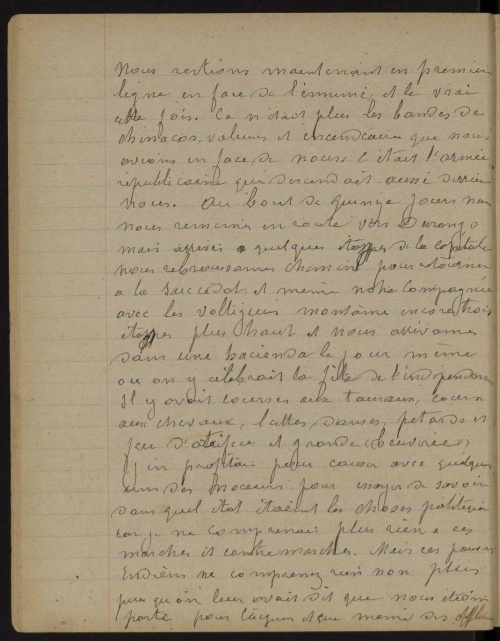 Nous restions maintenant en premier
ligne en face de l'ennemi, et le vrai
cette fois. Ce n'était plus les bandes de
chinacos, voleurs et incendiaires que nous
avions en face de nous c'était l'armée
républicaine qui descendait aussi derrière
nous. Au bout de quinze jours nous
nous remimes en route vers Durango
mais arrivés a quelques étapes de la capitale
nous rebroussames chemin pour retourner
a la et meme notre compagnie
avec les voltigeurs montame encore trois
étapes plus haut et nous arrivames
dans une hacienda le jour même
ou on y célébrait la fête de l'indépendance
Il y avait courses aux taureaux, courses
aux chevaux, luttes danses, petards et
feu d'artifice et grande
J'en profitai pour causer avec quelques
uns des pour essayer de savoir
dans quel état étaient les choses politiques
car je ne comprenais plus rien a ces
marches et contremarches. Mais ces pauvres
Indiens ne comprenez rien non plus
puis qu'on leur avait dit que nous étions
partis pour et que meme des